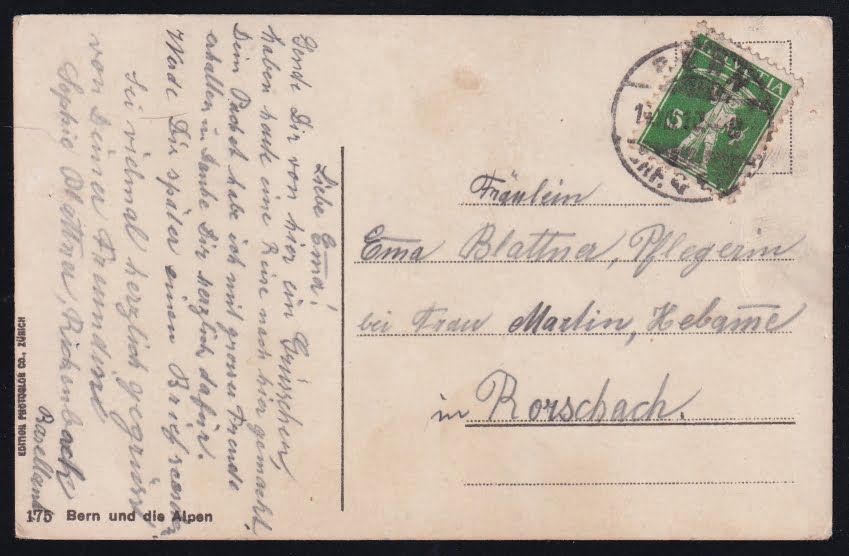 Liebe Ema!
Sende Dir von hier ein Grüsschen,
haben heute eine Reise nach hier gemacht,
Dein Packet habe ich mit grosser Freude
erhalten u. Danke Dir herzlich dafür.
Werde Dir später einen Brief
Sei vielmal herzlich gegrüsst
von Deiner Freundin
Sophie Blattner, Rickenbach
Baselland
Fräulein
Ema Blattner, Pflegerin
bei Frau Martin, Hebame
in Rorschach.
HELVETIA
5
EDITION PHOTOGLOB CO., ZÜRICH
175 Bern und die Alpen